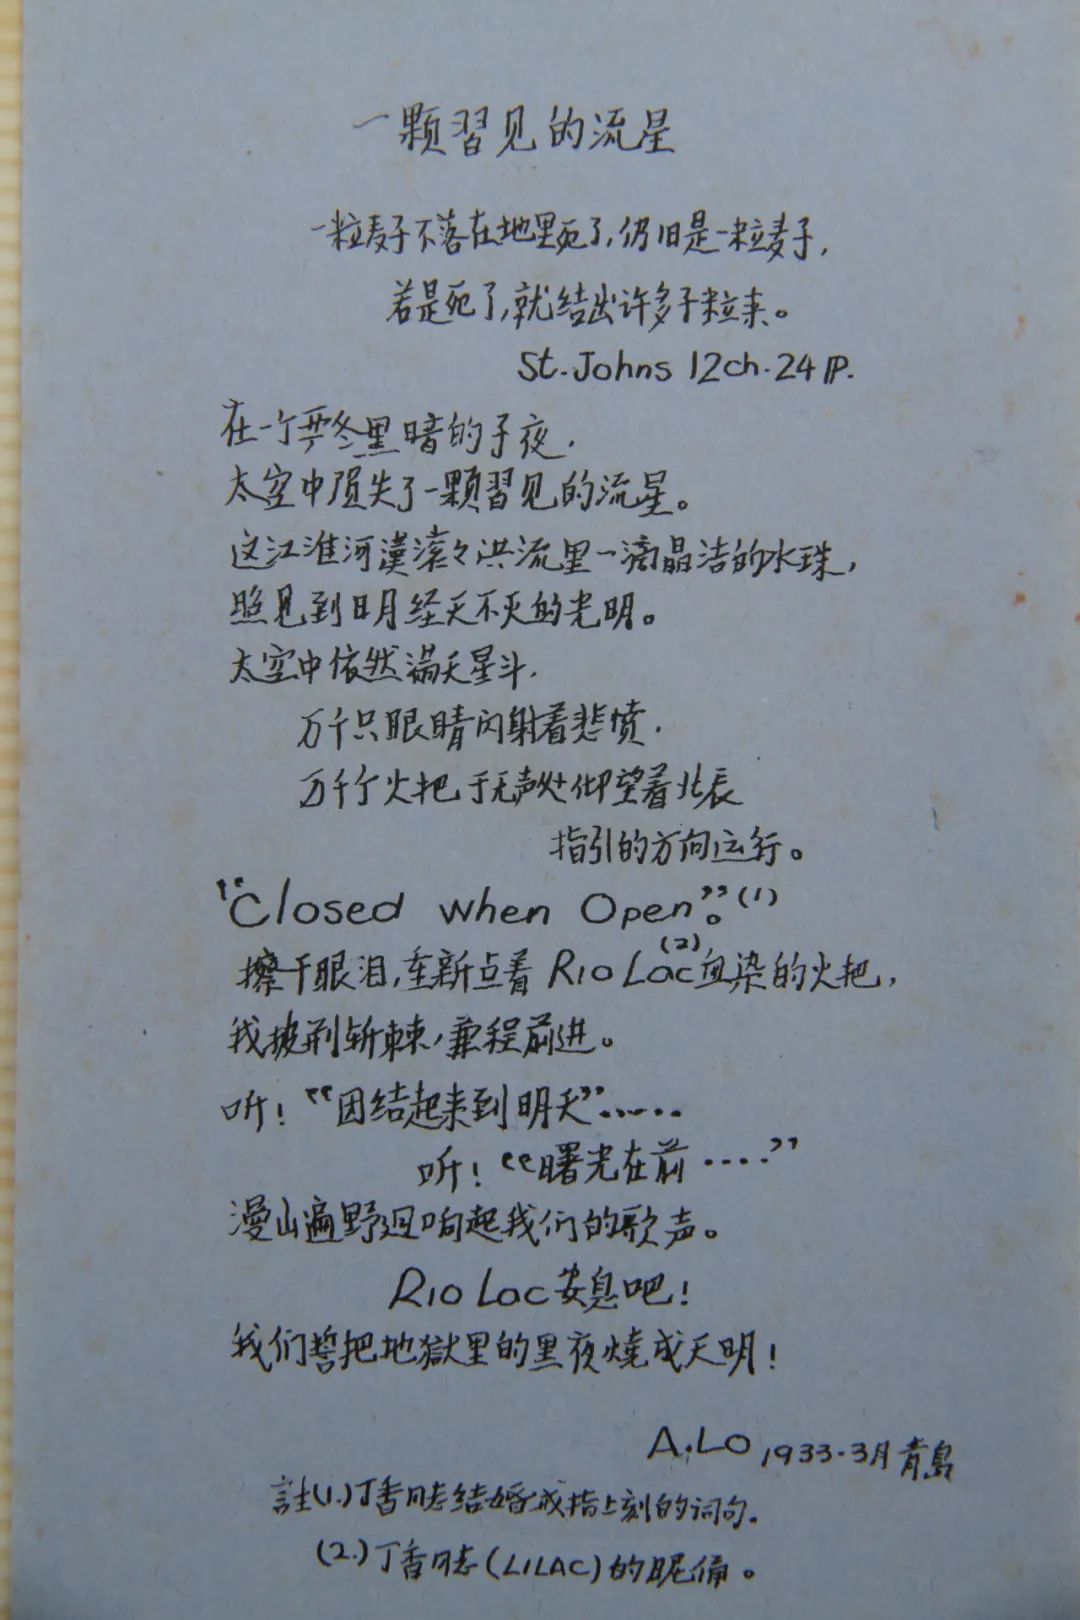 一颗習见的流星
一粒麦子不落在地里死了,仍旧是一粒麦子,
若是死了,就结出许多子粒来。
St.Johns 12ch.24 P.
在一个严冬黑暗的子夜.
太空中陨失了一颗習见的流星。
这江淮河漢滚々洪流里一滴晶洁的水珠,
照见到日月经天不灭的光明。
太空中依然满天星斗.
万千只眼睛闪射着悲愤.
万千个火把于无声处仰望着北辰
指引的方向运行。
"Closed when Open"。(1)
擦干眼泪,重新点着 Rio Lac(2)血染的火把,
我披荆斩棘,兼程前进。
听!"团结起来到明天"……
听!"曙光在前 ….."
漫山遍野迴响起我们的歌声。
Rio Lac安息吧!
我们誓把地獄里的黑夜燒成天明!
A.LO 1933.3月青島
註(1.)丁香同志结婚戒指上刻的词句.
(2.)丁香同志(LILAC)的昵俑。